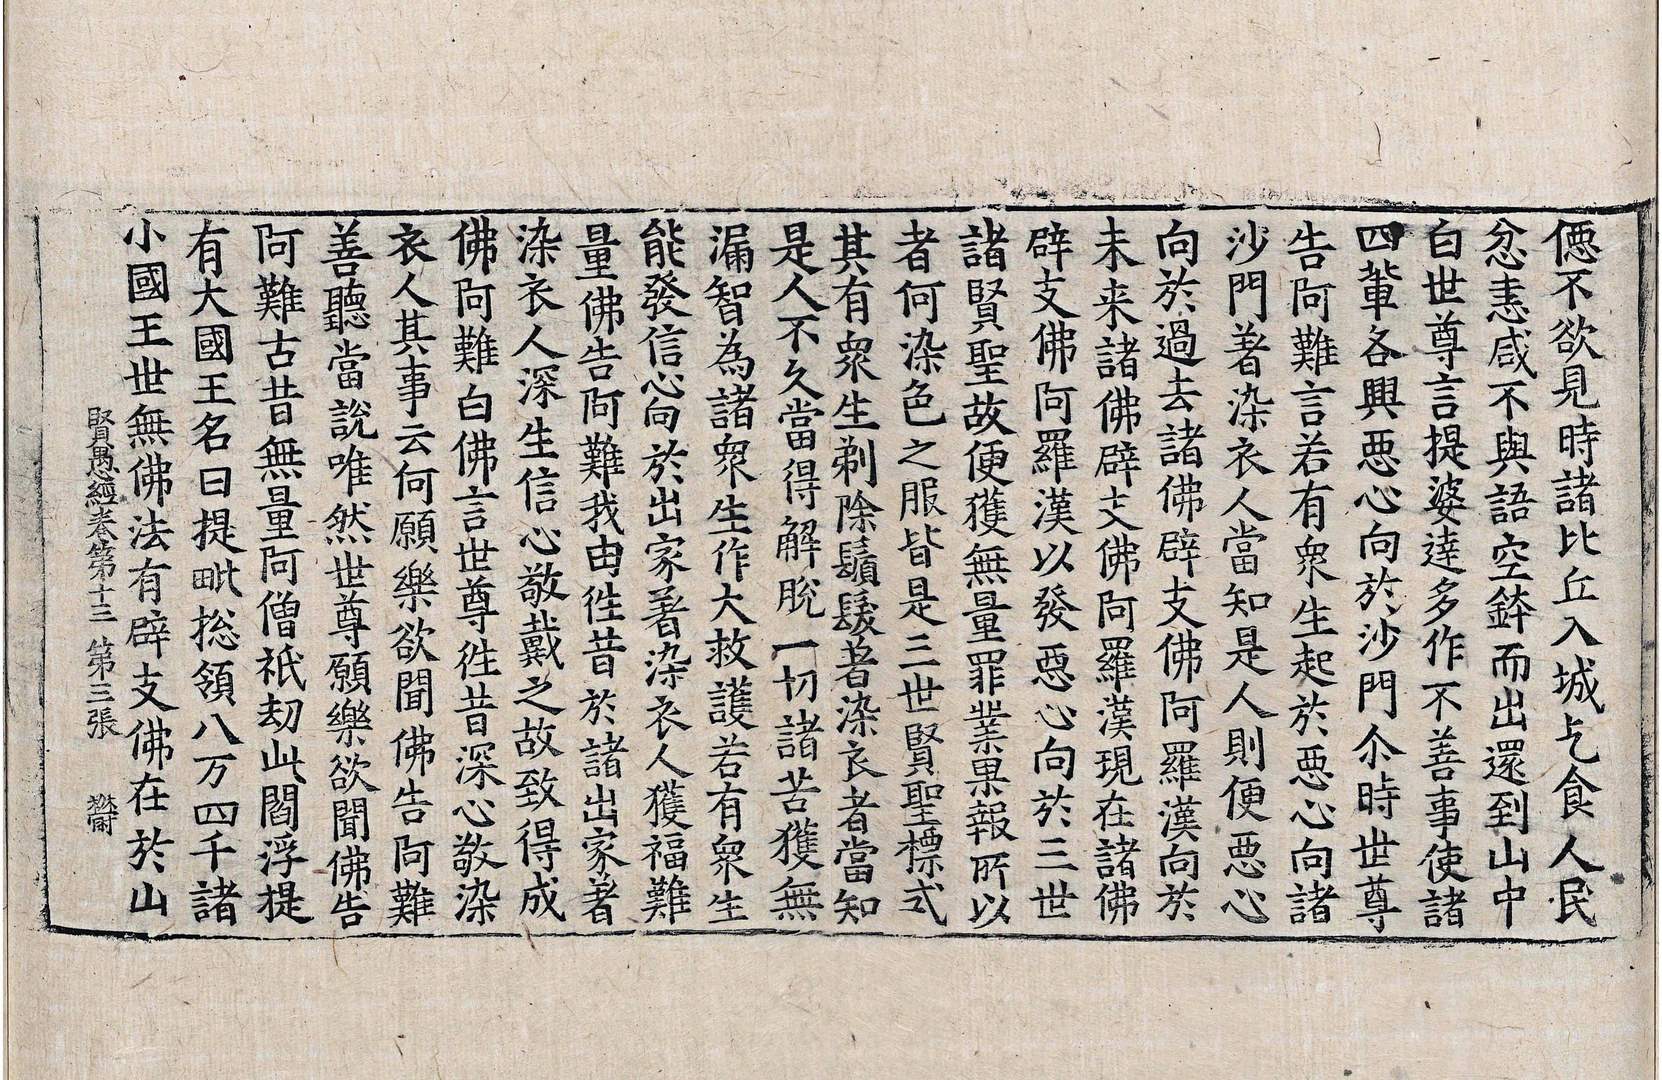 僫不欲見時諸比丘入城乞食人民
忿恚咸不與語空鉢而出還到山中
白世尊言提婆達多作不善事使諸
四輩各興惡心向於沙門尒時世尊
告阿難言若有衆生起於惡心向諸
沙門著染衣人當知是人則便惡心
向於過去諸佛辟支佛阿羅漢向於
未来諸佛辟支佛阿羅漢現在諸佛
辟支佛阿羅漢以發惡心向於三世
諸賢聖故便獲無量罪業果報所以
者何染色之服皆是三世賢聖標式
其有衆生剃除鬚髮著染衣者當知
是人不久當得解脫一切諸苦獲無
漏智為諸衆生作大救護若有衆生
能發信心向於出家著染衣人獲福難
量佛告阿難我由徃昔於諸出家著
染衣人深生信心敬戴之故致得成
佛阿難白佛言世尊徃昔深心敬染
衣人其事云何願樂欲聞佛告阿難
善聽當說唯然世尊願樂欲聞佛告
阿難古昔無量阿僧祇劫此閻浮提
有大國王名曰提毗捴領八万四千諸
小國王世無佛法有辟支佛在於山
賢愚經卷第十三 第三張 欝